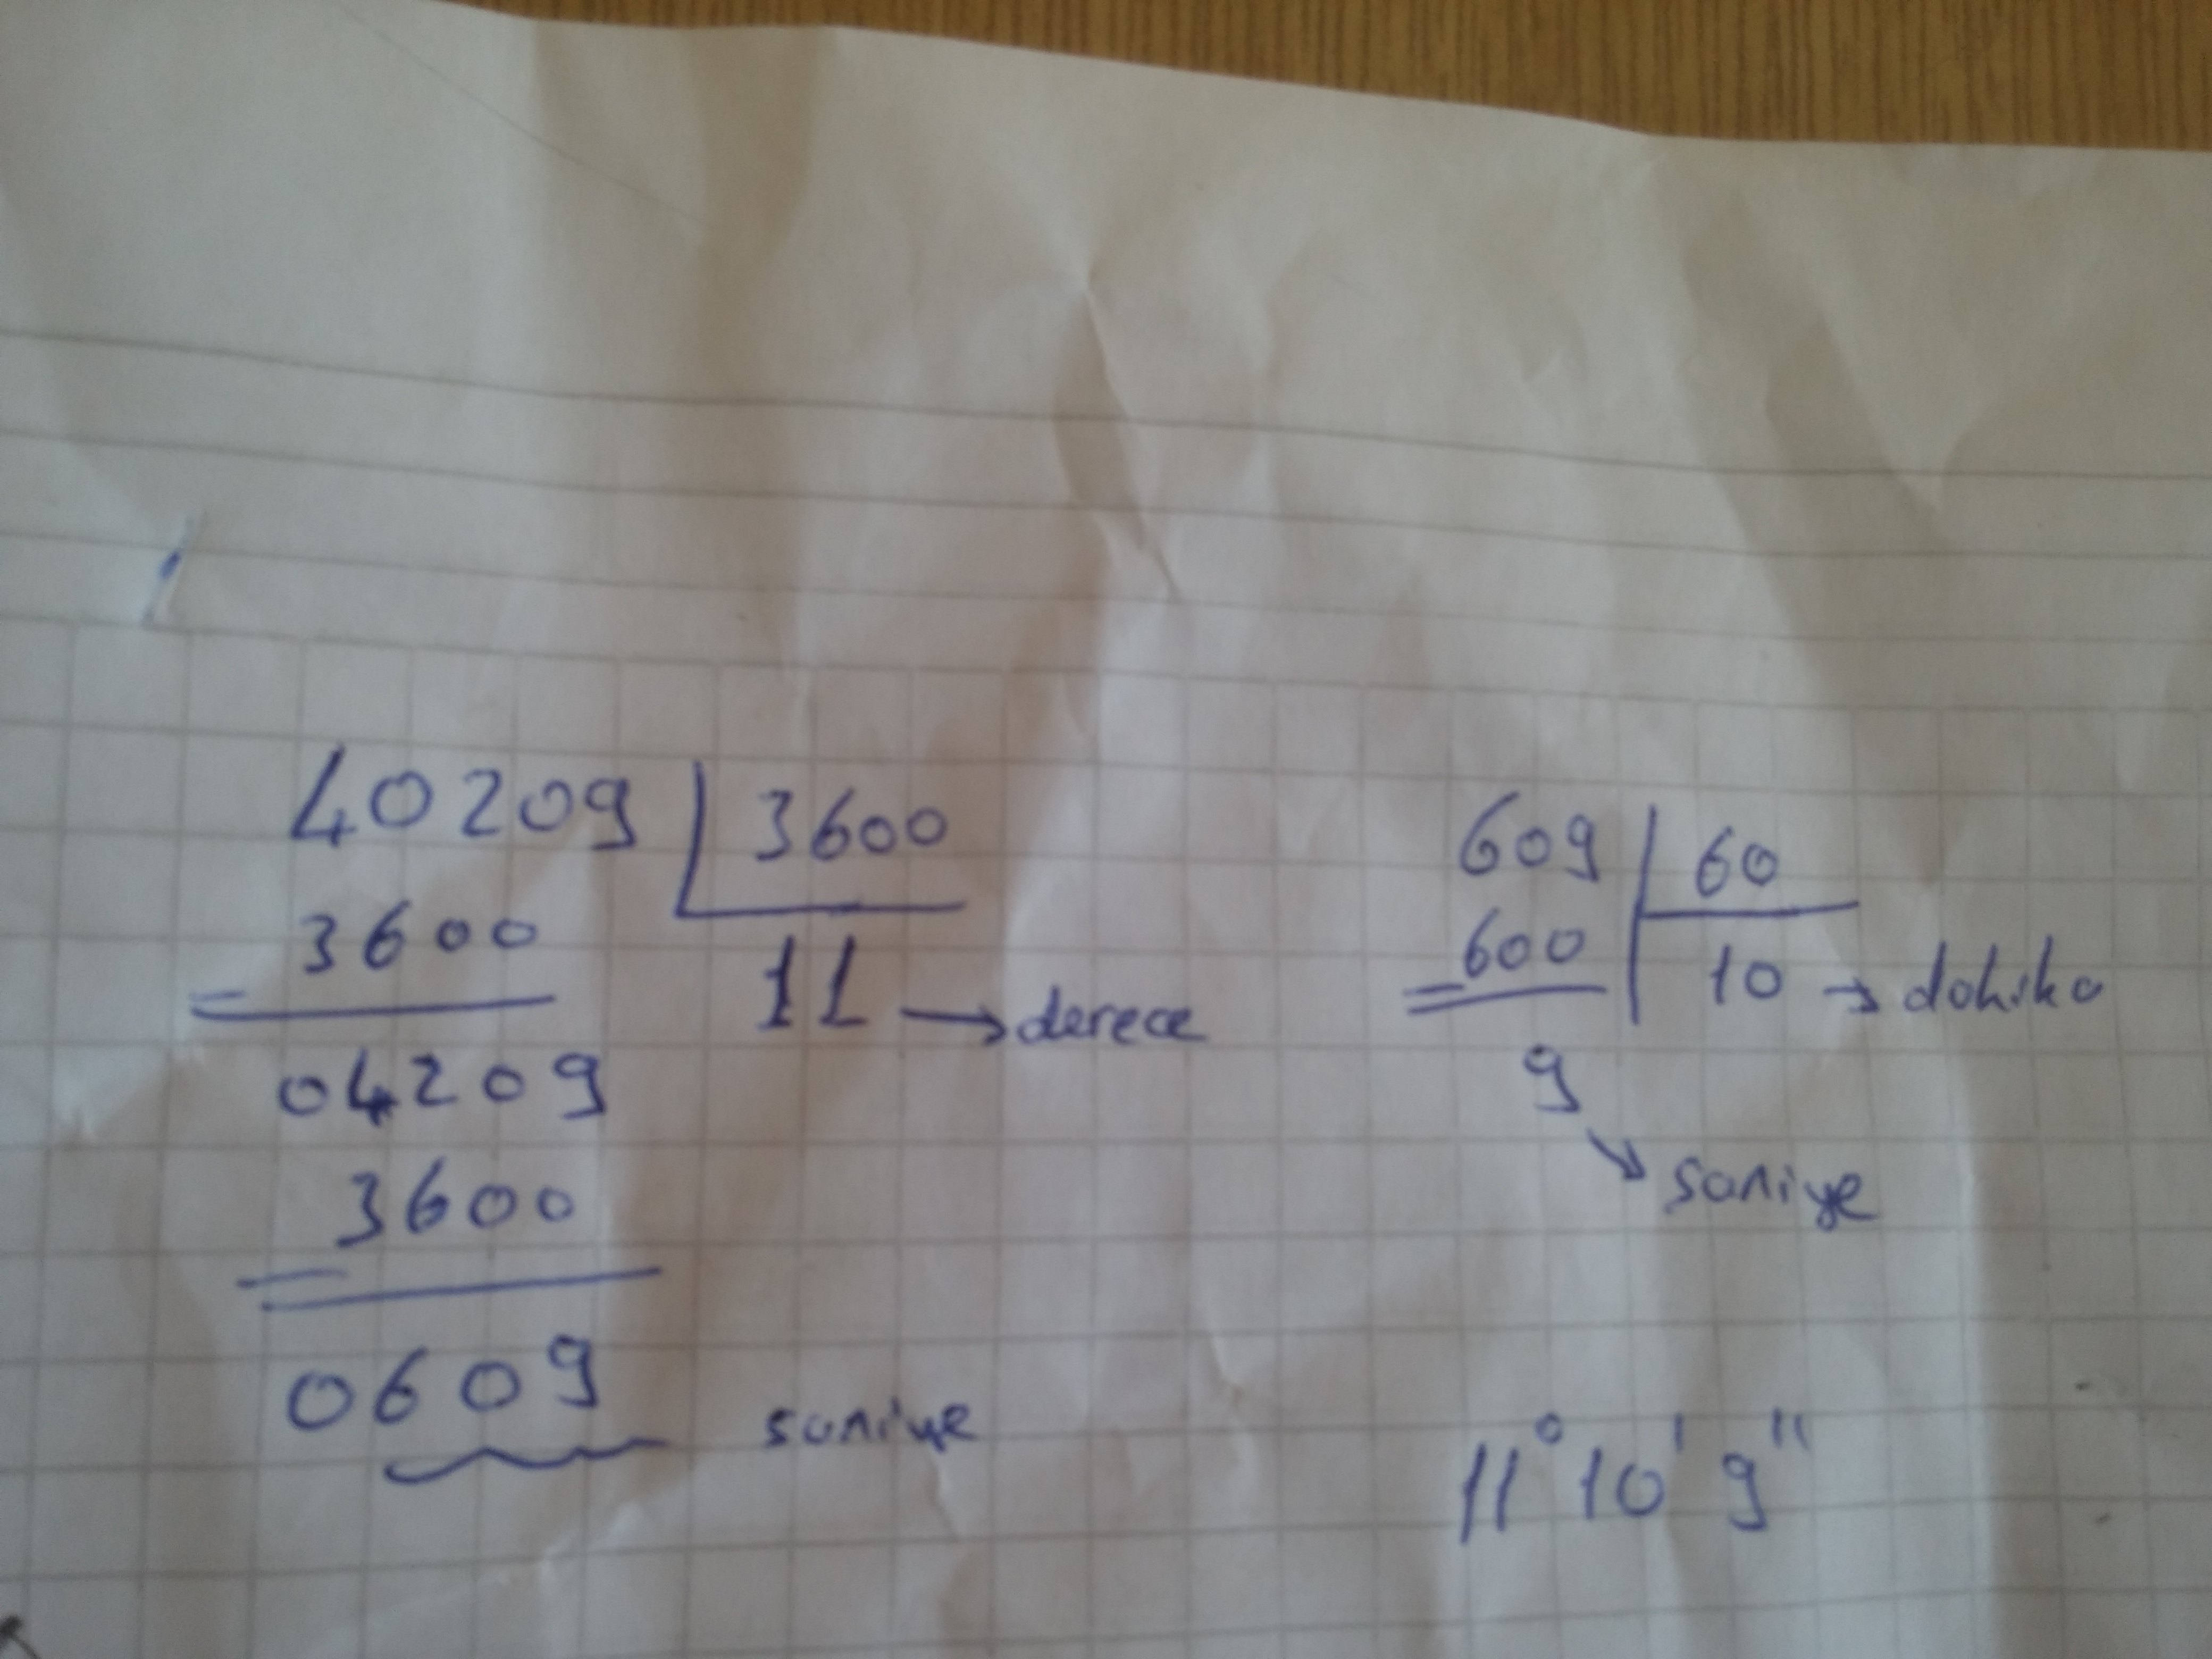 40209 3600
3600
11 → derece
04209
3600
0609 saniye
609 60
600
10 → dakika
9
saniye
11° 10' 9''